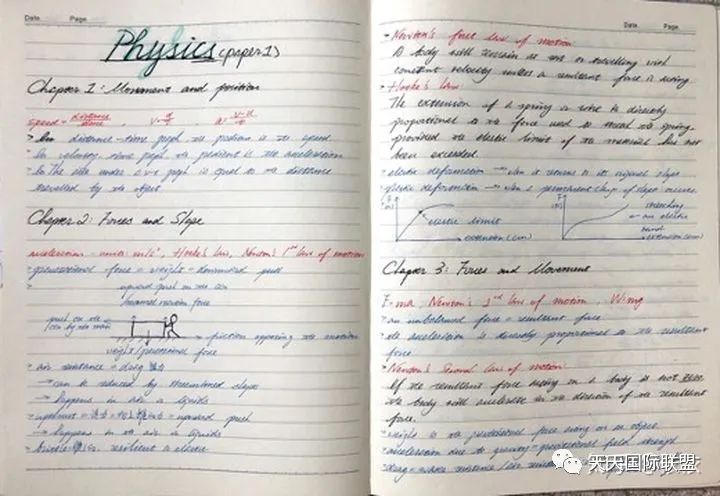 Date.  Page.
Physics (paper 1)
Chapter 1: Movement and position
speed = distance/time , v = d/t , a = v-u/t
In distance-time graph the gradient is the speed
In velocity-time graph the gradient is the acceleration
the area under a v-t graph is equal to the distance
travelled by the object
Chapter 2: Forces and Shape
acceleration - units: m/s², Hooke's law, Newton's 1st law of motion
gravitational force = weight = downward pull
upward push on the car
/normal reaction force
push on the
car by the man
friction opposing the motion
weight/gravitational force
air resistance = drag
→ can be reduced by streamlined shapes
→ happens in air & liquids
upthrust = upward push
→ happens in the air & liquids
brittle
Date.  Page.
Newton's first law of motion
A body will remain at rest or travelling with
constant velocity unless a resultant force is acting
Hooke's law:
The extension of a spring or wire is directly
proportional to the force used to the spring
provided the elastic limit of the material has not
been exceeded.
elastic deformation → when it returns to its original shape
plastic deformation → when a permanent change of shape occurs
F
(N)
elastic limit
extension (cm)
F
(N)
stretching
an elastic
band
extension (cm)
Chapter 3: Forces and Movement
F=ma, Newton's 3rd law of motion, W=mg
an unbalanced force = resultant force
the acceleration is directly proportional to the resultant
force
Newton's Second law of motion
If the resultant force acting on a body is not zero
the body will accelerate in the direction of the resultant
force.
weight is the gravitational force acting on an object
acceleration due to gravity = gravitational field strength
drag = water resistance / air
天天国际联盟